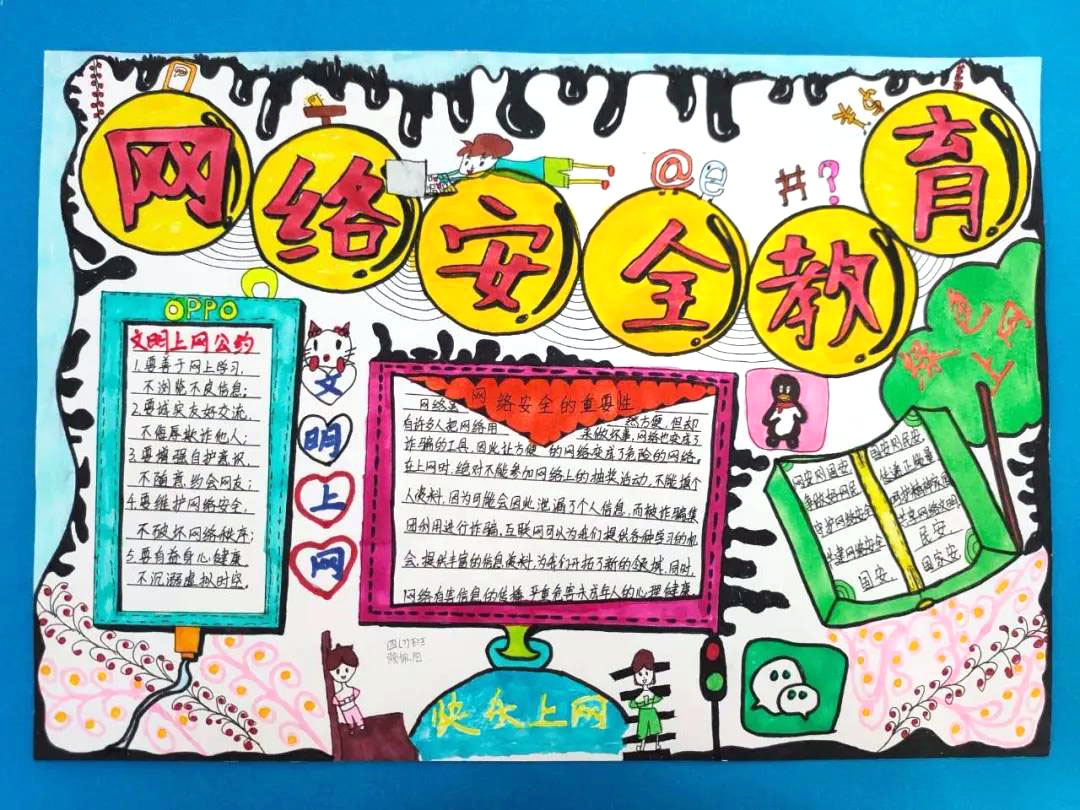 网络安全教育
@ e # ?
OPPO
文明上网公约
1.要善于网上学习,
不浏览不良信息;
2.要诚实友好交流,
不侮辱欺诈他人;
3.要增强自护意识,
不随意约会网友;
4.要维护网络安全,
不破坏网络秩序;
5.要有益身心健康,
不沉溺虚拟时空。
文
明
上
网
网络安全的重要性
网络
有许多人把网络用
方便,但却
来做坏事,网络也变成了
诈骗的工具,因此让方便的网络变成了危险的网络。
在上网时,绝对不能参加网络上的抽奖活动,不能填个
人资料,因为可能会因此泄漏了个人信息,而被诈骗集
团利用进行诈骗,互联网可以为我们提供各种学习的机
会,提供丰富的信息资料,为我们开拓了新的领域,同时,
网络有害信息的传播,严重危害未成年人的心理健康。
绿色
上网
网安则国安
争做好网民
守护网络安全
共建网络安全
国安,
国安则民安,
传递正能量
民安
国家安
四(7)班
快乐上网